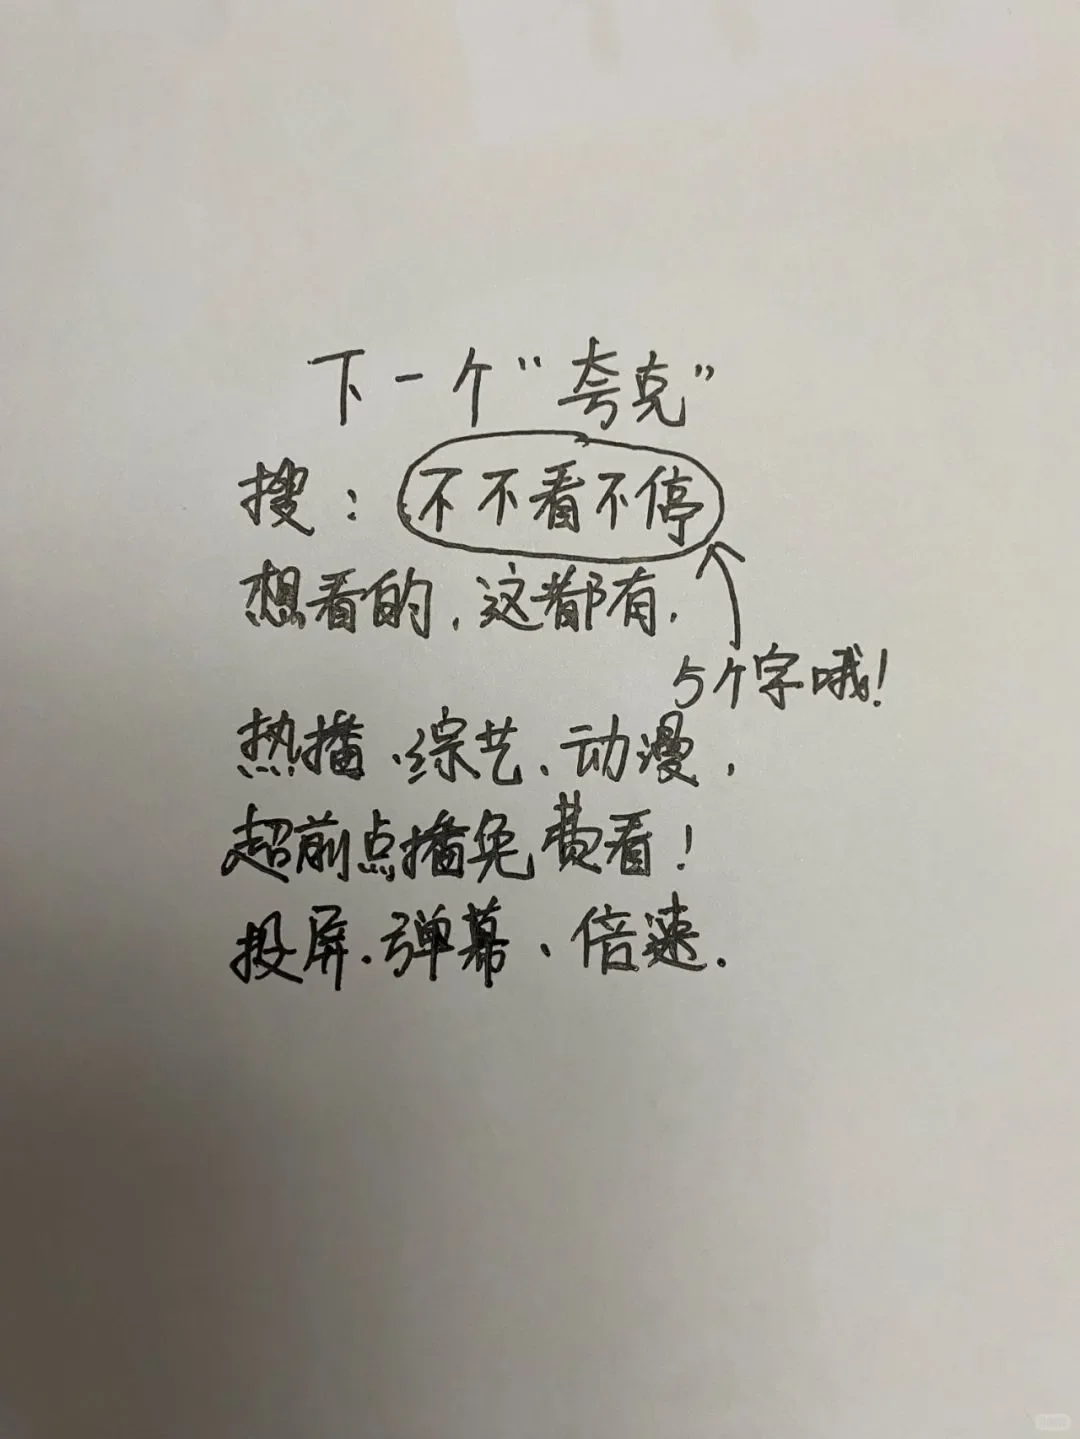 下一个“夸克”
搜：不不看不停
想看的，这都有，
5个字哦！
热播、综艺、动漫，
超前点播免费看！
投屏、弹幕、倍速。